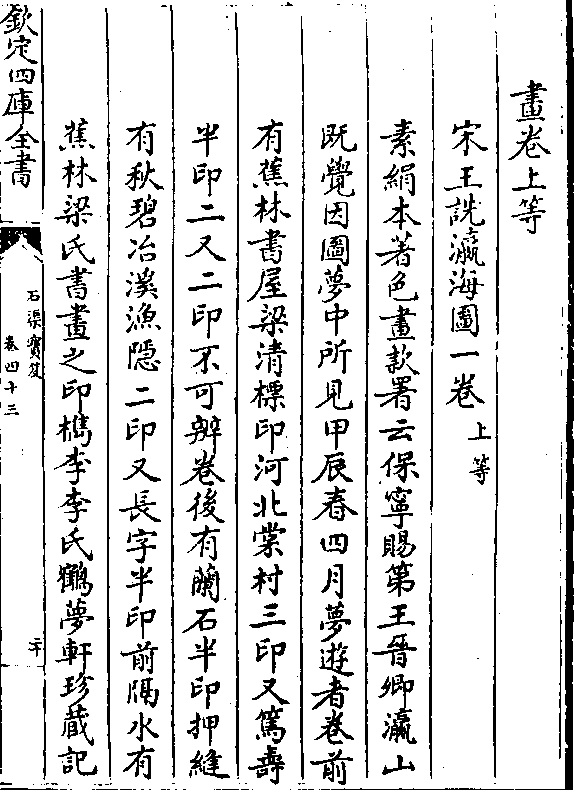 畫卷上等
宋王詵瀛海圖一卷 上等
素絹本著色畫款署云保寧賜第王晉卿瀛山
既覺因圖夢中所見甲辰春四月夢遊者卷前
有蕉林書屋梁清標印河北棠村三印又篤壽
半印二又二印不可辨卷後有蘭石半印押縫
有秋碧冶溪漁隱二印又長字半印前隔水有
蕉林梁氏書畫之印檇李李氏鶴夢軒珍蔵記
欽定四庫全書
石渠寳笈
卷四十三
二十